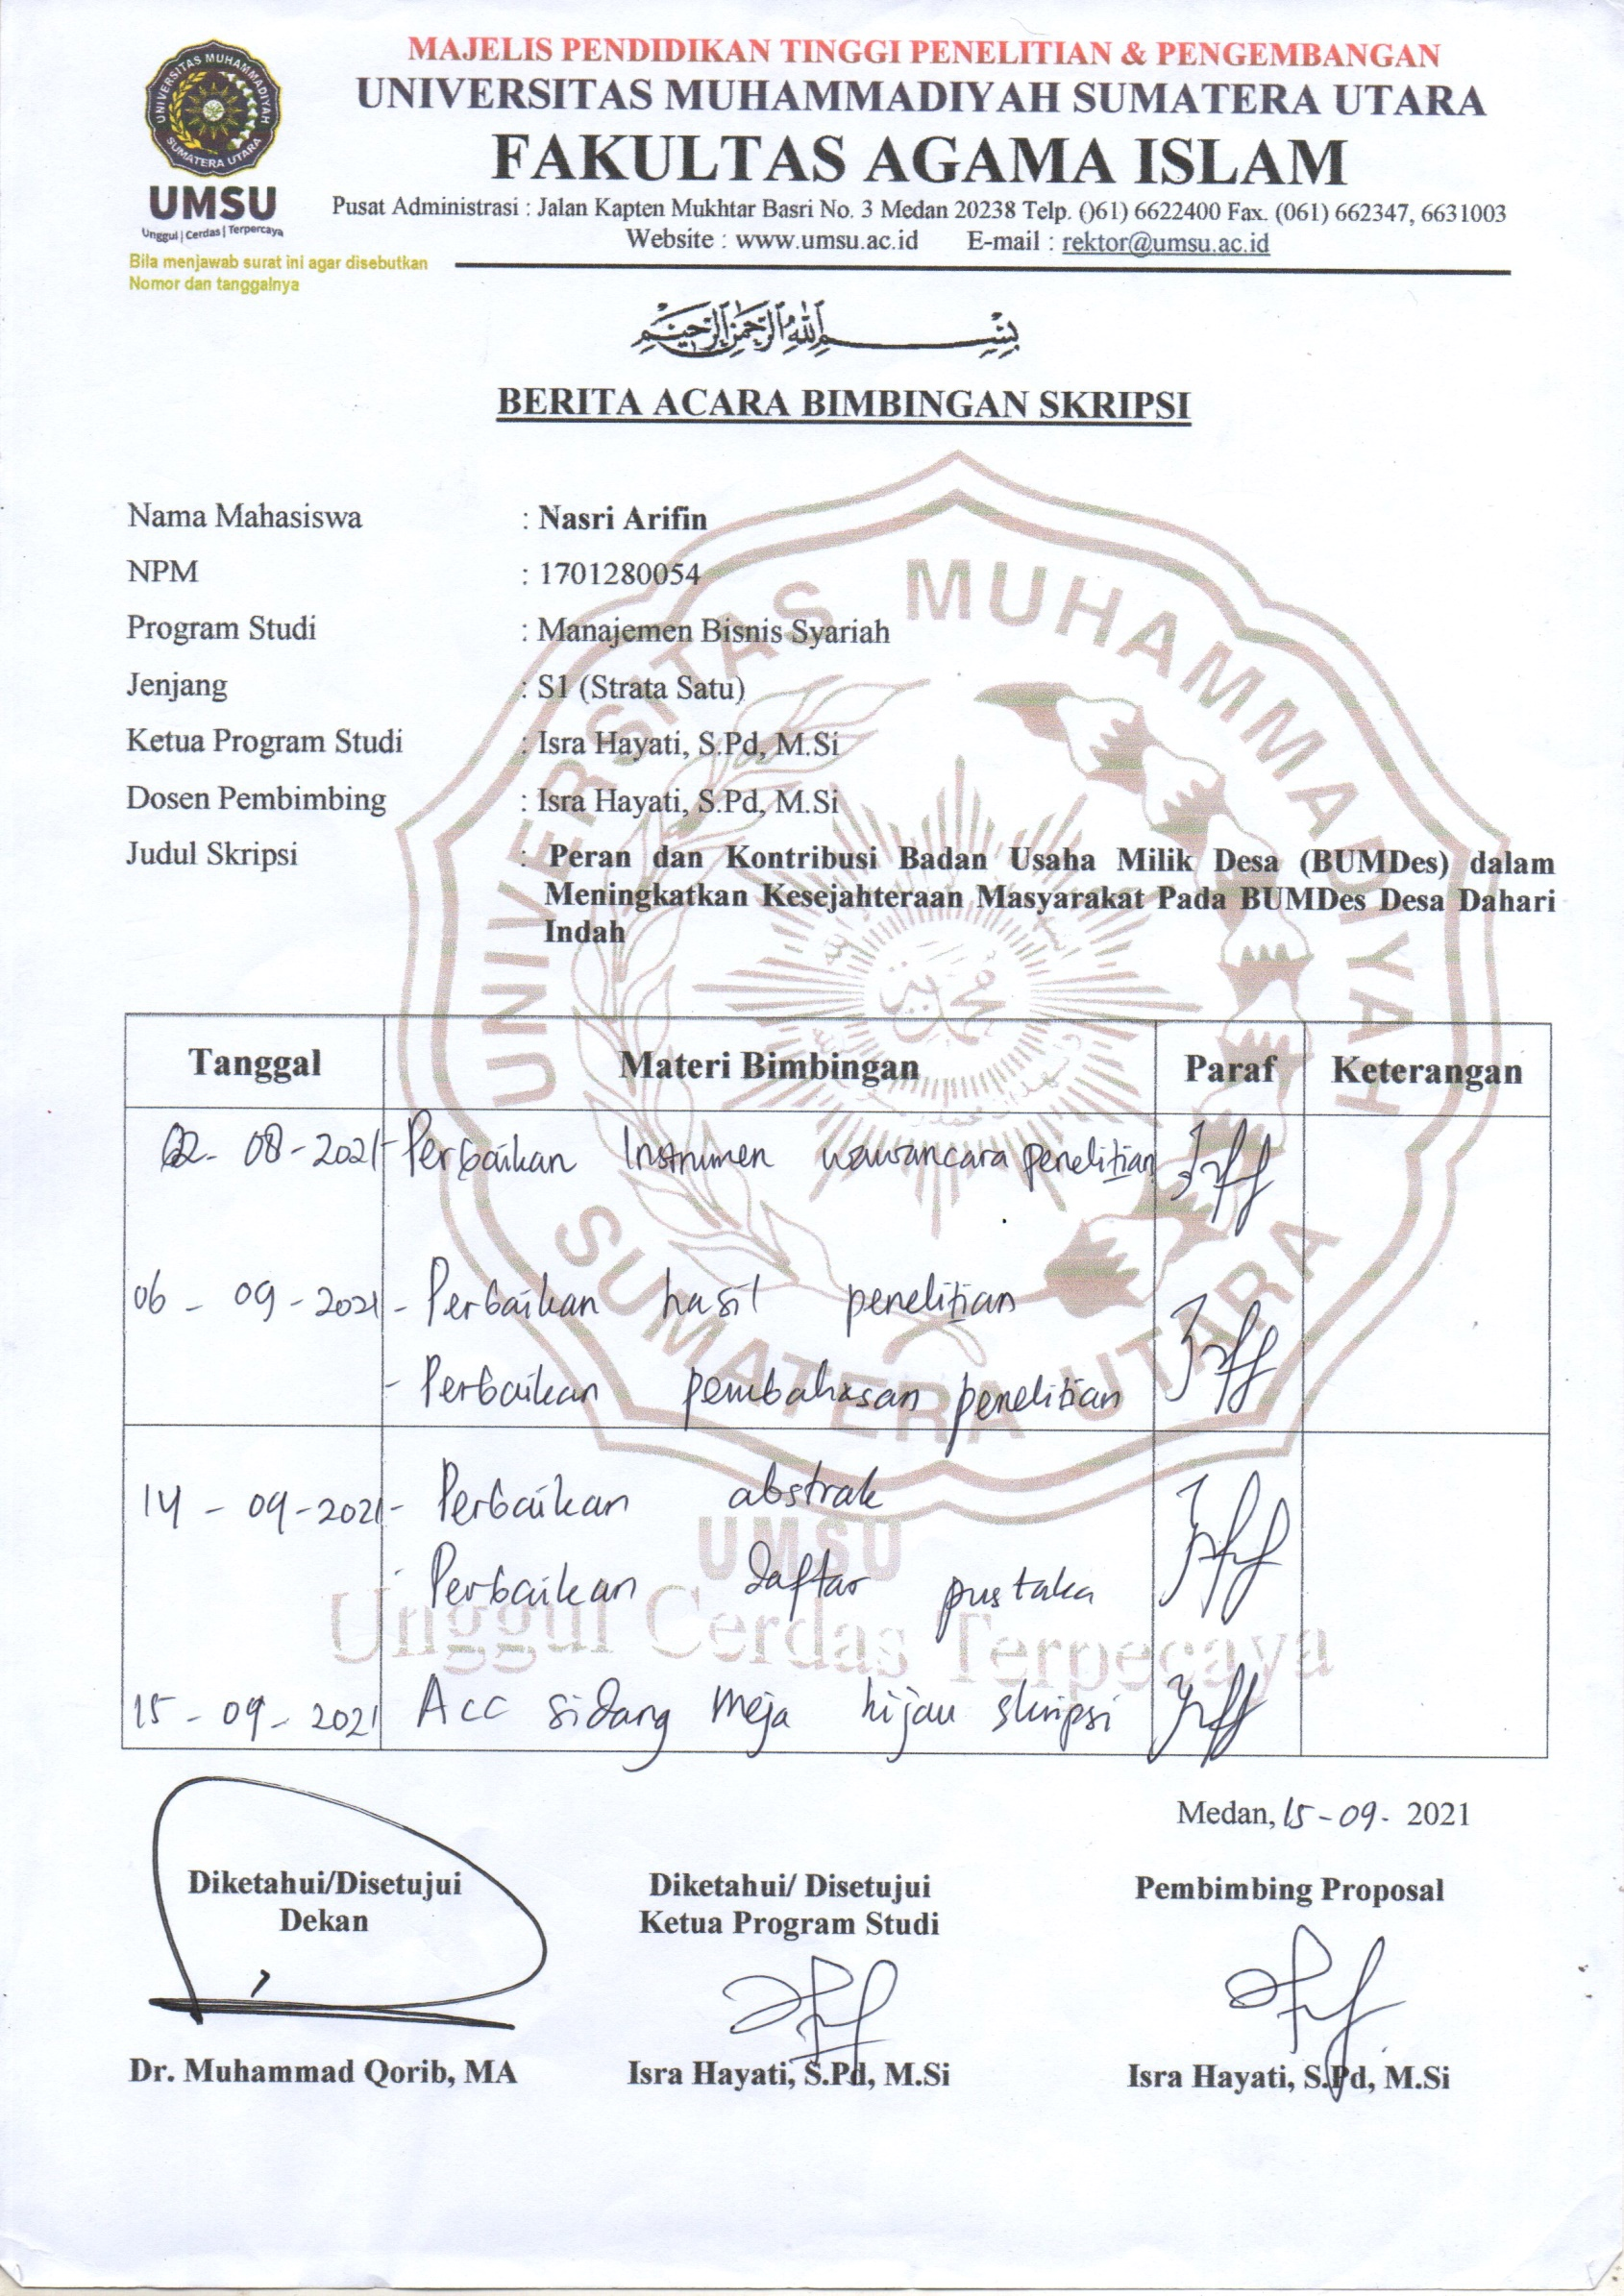 MAJELIS PENDIDIKAN TINGGI PENELITIAN & PENGEMBANGAN
UNIVERSITAS MUHAMMADIYAH SUMATERA UTARA
FAKULTAS AGAMA ISLAM
Pusat Administrasi : Jalan Kapten Mukhtar Basri No. 3 Medan 20238 Telp. ()61) 6622400 Fax. (061) 662347, 6631003
Website : www.umsu.ac.id E-mail : rektor@umsu.ac.id
UNIVERSITAS MUHAMMADIYAH
SUMATERA UTARA
UMSU
Unggul | Cerdas | Terpercaya
Bila menjawab surat ini agar disebutkan
Nomor dan tanggalnya
بِسْمِ اللهِ الرَّحْمَنِ الرَّحِيمِ
BERITA ACARA BIMBINGAN SKRIPSI
Nama Mahasiswa : Nasri Arifin
NPM : 1701280054
Program Studi : Manajemen Bisnis Syariah
Jenjang : S1 (Strata Satu)
Ketua Program Studi : Isra Hayati, S.Pd, M.Si
Dosen Pembimbing : Isra Hayati, S.Pd, M.Si
Judul Skripsi : Peran dan Kontribusi Badan Usaha Milik Desa (BUMDes) dalam
Meningkatkan Kesejahteraan Masyarakat Pada BUMDes Desa Dahari
Indah
UNIVERSITAS MUHAMMADIYAH
SUMATERA UTARA
Tanggal Materi Bimbingan Paraf Keterangan
02 - 08 - 2021 - Perbaikan Instrumen wawancara penelitian
06 - 09 - 2021 - Perbaikan hasil penelitian
- Perbaikan pembahasan penelitian
14 - 09 - 2021 - Perbaikan abstrak
UMSU
- Perbaikan daftar pustaka
Unggul Cerdas Terpecaya
15 - 09 - 2021 Acc sidang meja hijau skripsi
Medan, 15 - 09 - 2021
Diketahui/Disetujui Diketahui/ Disetujui Pembimbing Proposal
Dekan Ketua Program Studi
Dr. Muhammad Qorib, MA Isra Hayati, S.Pd, M.Si Isra Hayati, S.Pd, M.Si